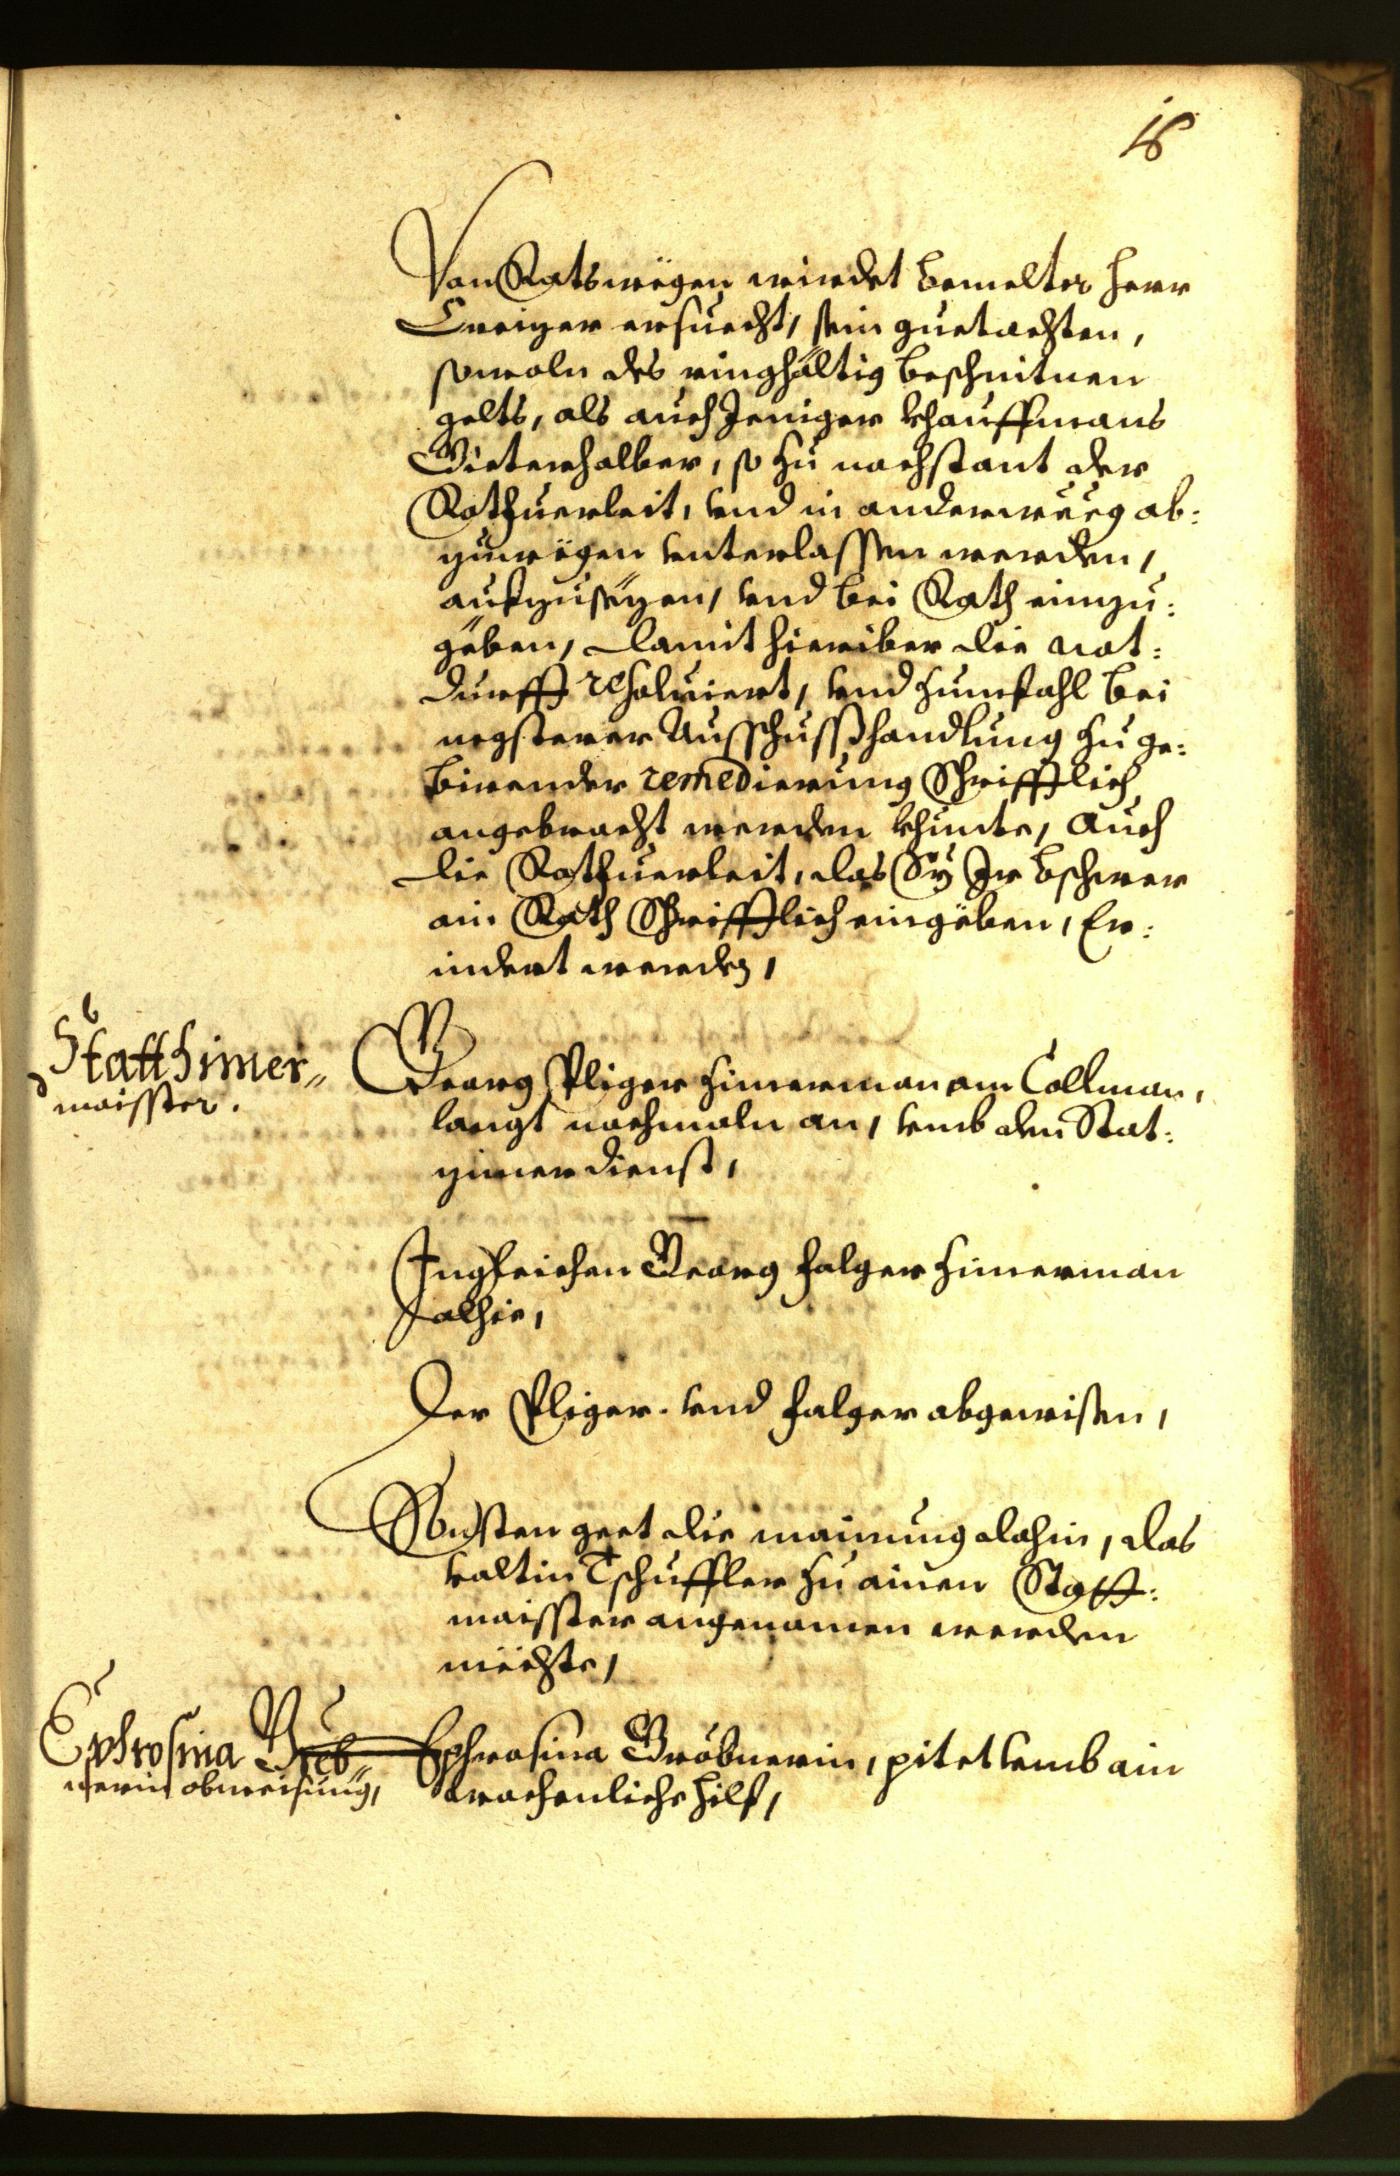 16
Von Ratswëgen wirdet bemelter Herr
Creizer ersuecht, sein guetachten,
sowoln des ringhältig beschnitnen
gelts, als auch Jeniger khauffmans
Gieterhalber, so zu nachstant der
Rothuerleit, vnd in anderweeg ab:
zuwëgen vnterlassen werden,
aufzusezen, vnd bei Rath einzu:
gëben, damit hieriber die not:
durfft resoluiert, vnd zumfahl bei
negsterer Ausschusshandlung zu ge:
birender remedierung Schrifftlich
angebracht werden khunte, Auch
die Rothuerleit, das Sÿ Jr bschwer
ain Rath Schrifftlich eingëben, Er:
indert werden,
Statt Zimer„
maisster.
Georg Pliger Zimerman am Collman,
langt nochmaln an, vmb den Stat:
zimerdienst,
Ingleichen Georg Falger Zimerman
alhie,
Der Pliger vnd Falger abgewisen,
Sonsten geet die mainung dahin, das
Valtin Tschuffler zu ainen Statt:
maisster angenomen werden
mëchte,
Ephrosina Greb„
nerin abweisung,
Ephrosina Gröbnerin, pitet vmb ain
wochenliche hilf,